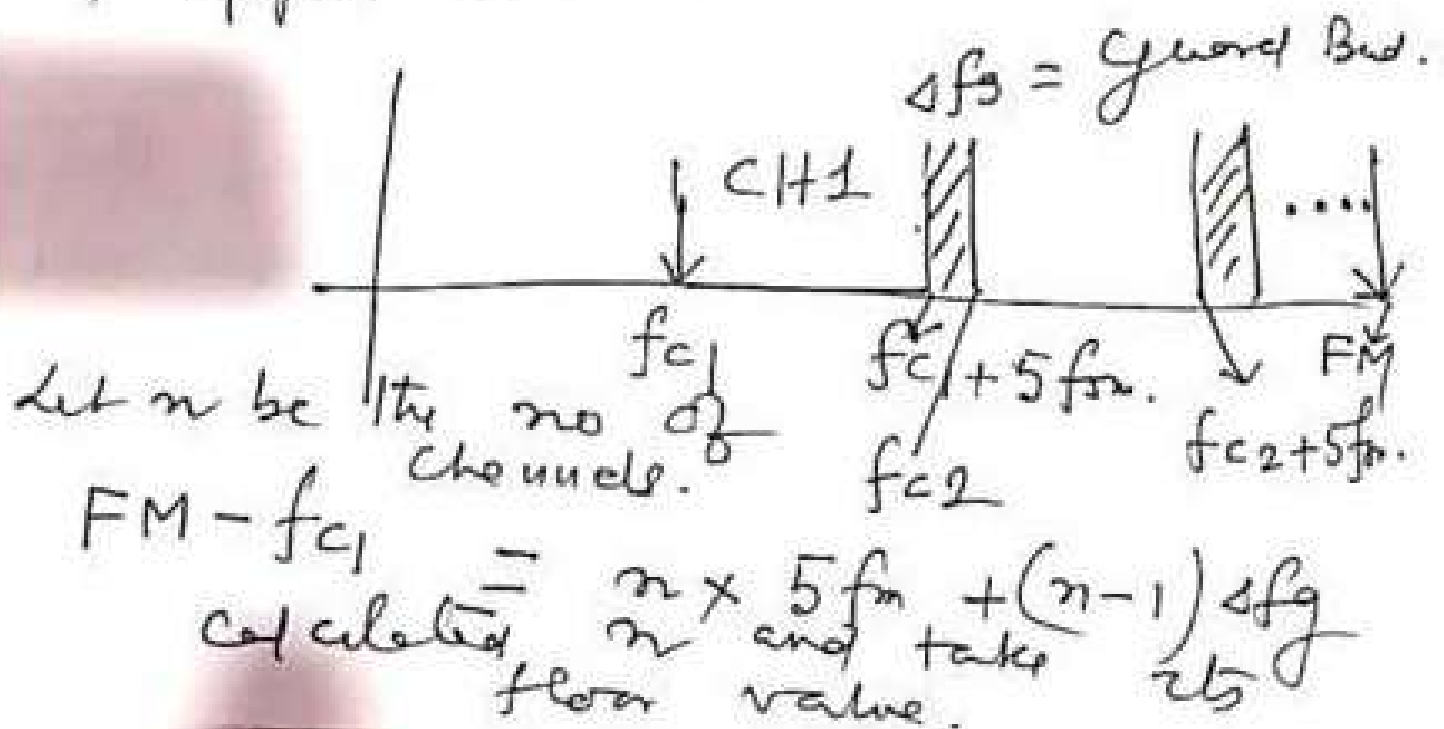 Δfg = Guard Bnd.
CH1
....
fc1
fc1 + 5fm.
FM
fc2
fc2+5fm.
Let n be the no of
channels.
FM - fc1
= n x 5fm + (n-1) Δfg
calculated n and take its
floor value.